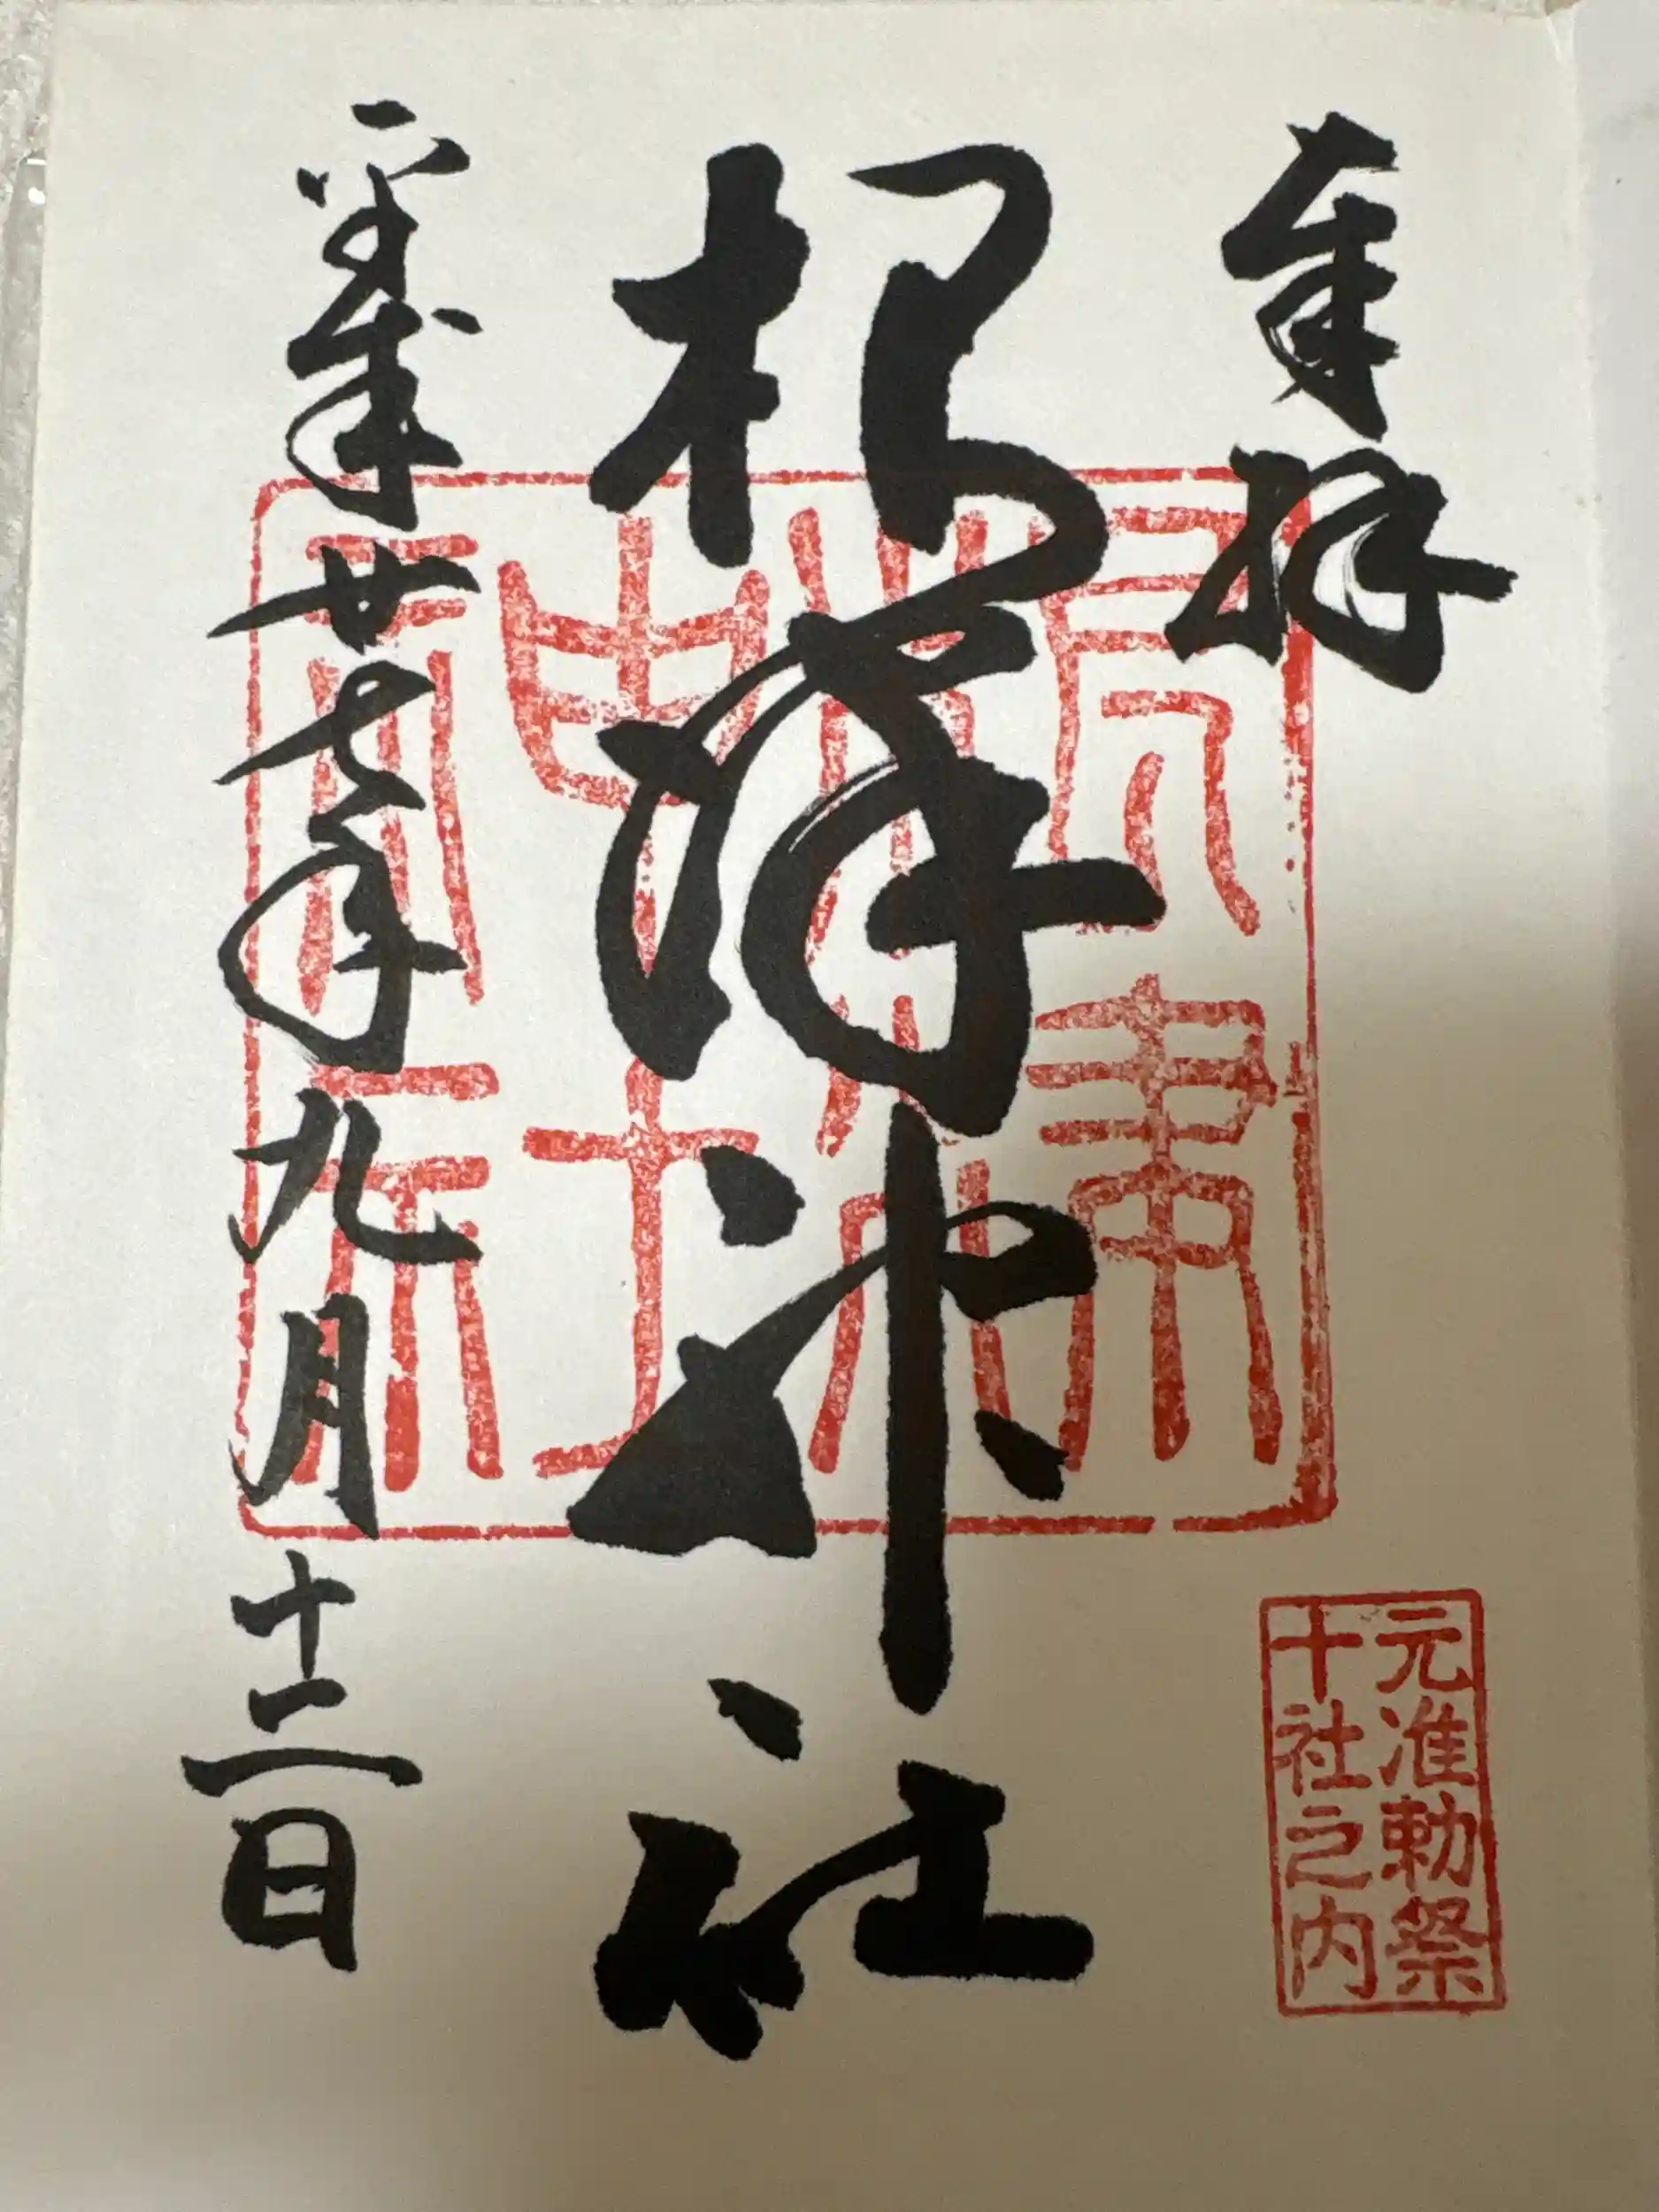 奉拝
根津神社
平成廿七年九月十二日
根津神社
元准勅祭
十社之内